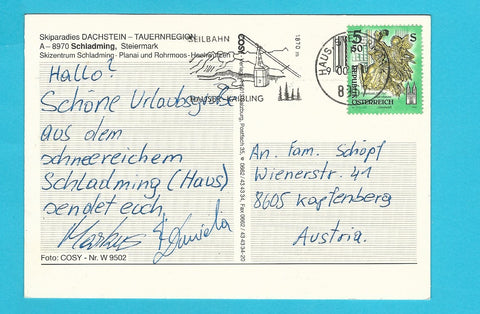 Skiparadies DACHSTEIN – TAUERNREGION
A – 8970 Schladming, Steiermark
Skizentrum Schladming - Planai und Rohrmoos -
Hallo?
Schöne Urlaubsgrüße
aus dem
schneereichem
Schladming (Haus)
sendet euch
Markus & Daniela
Foto: COSY - Nr. W 9502
SEILBAHN
1870 m
HAUSER KAIBLING
COSY
Postfach 35, ☎ 0662/43 43 34, Fax 0662/43 43 34-20
HAUS
5 50
S
REPUBLIK
ÖSTERREICH
An. Fam. Schöpf
Wienerstr. 41
8605 Kapfenberg
Austria.